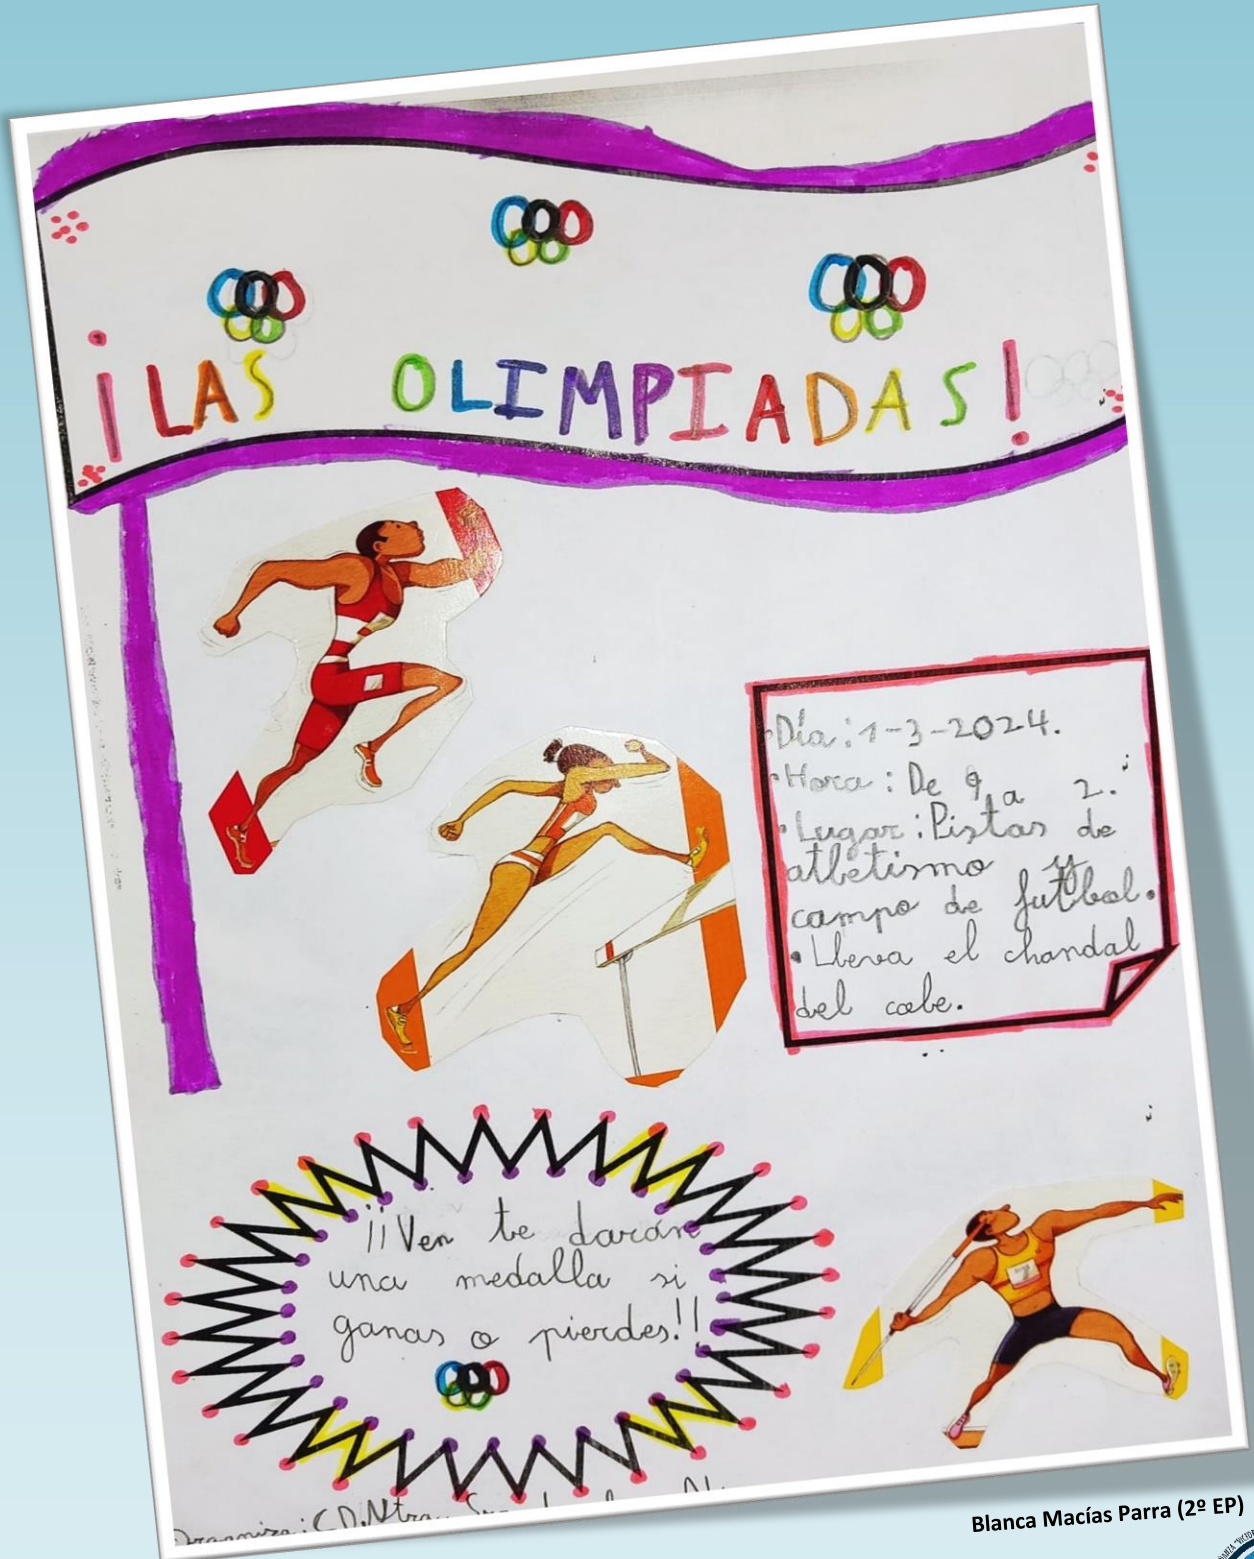 ¡LAS OLIMPIADAS!
•Día: 1-3-2024.
•Hora: De 9 a 2.
•Lugar: Pistas de
atletismo y
campo de futbol.
•Lleva el chandal
del cole.
¡¡Ven te darán
una medalla si
ganas o pierdes!!
Organiza: C.D. Ntra.
Blanca Macías Parra (2º EP)